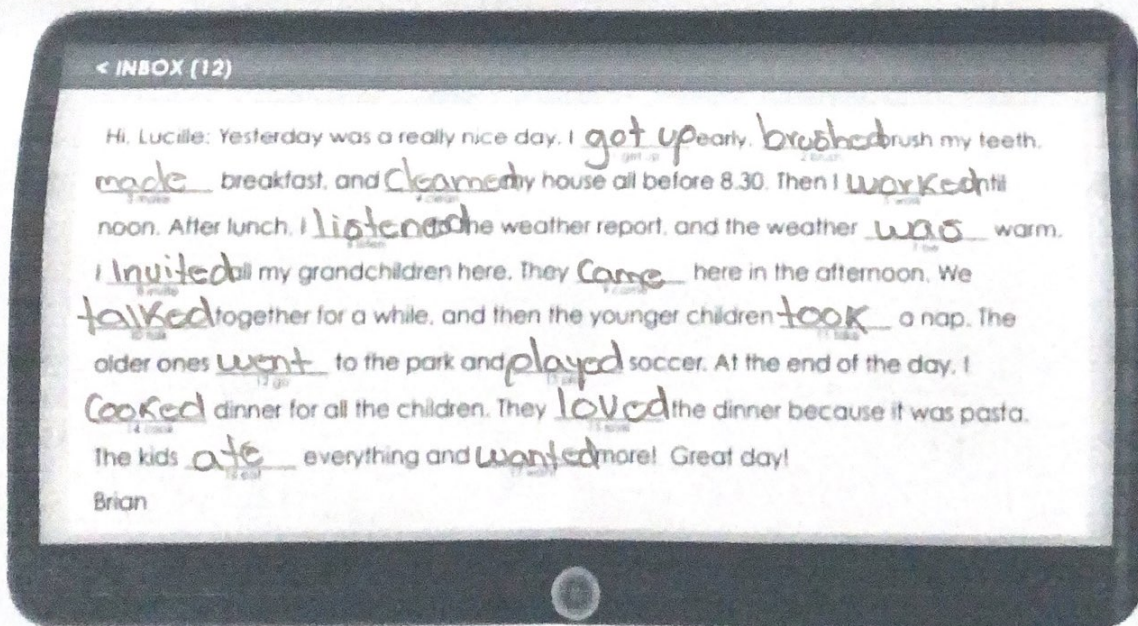 < INBOX (12)
Hi, Lucille: Yesterday was a really nice day. I got up early, brushed brush my teeth,
get up 2 brush
made breakfast, and Cleaned my house all before 8.30. Then I worked until
3 make 4 clean 5 work
noon. After lunch, I listened the weather report, and the weather was warm.
6 listen 7 be
I Invited all my grandchildren here. They Came here in the afternoon. We
8 invite 9 come
talked together for a while, and then the younger children took a nap. The
10 talk 11 take
older ones went to the park and played soccer. At the end of the day, I
12 go
Cooked dinner for all the children. They loved the dinner because it was pasta.
14 cook
The kids ate everything and wanted more! Great day!
16 eat 17 want
Brian